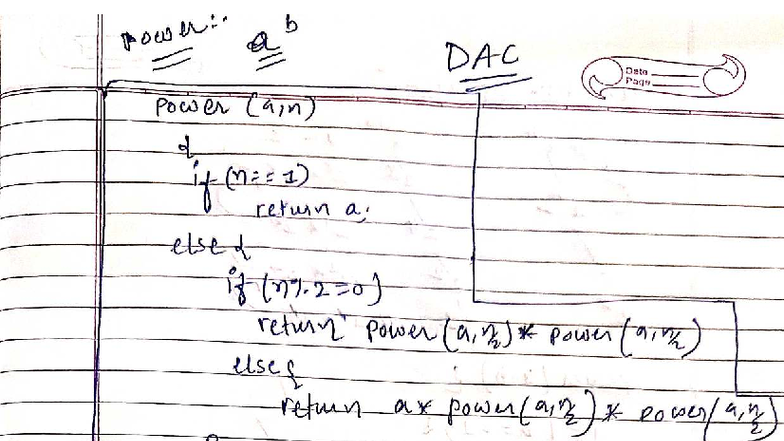 power:- a^b
DAC
Date
Page
power (a,n)
{
if (n == 1)
return a;
else {
if (n%2=0)
return power(a,n/2) * power(a,n/2)
else {
return a* power(a,n/2) * power(a,n/2)